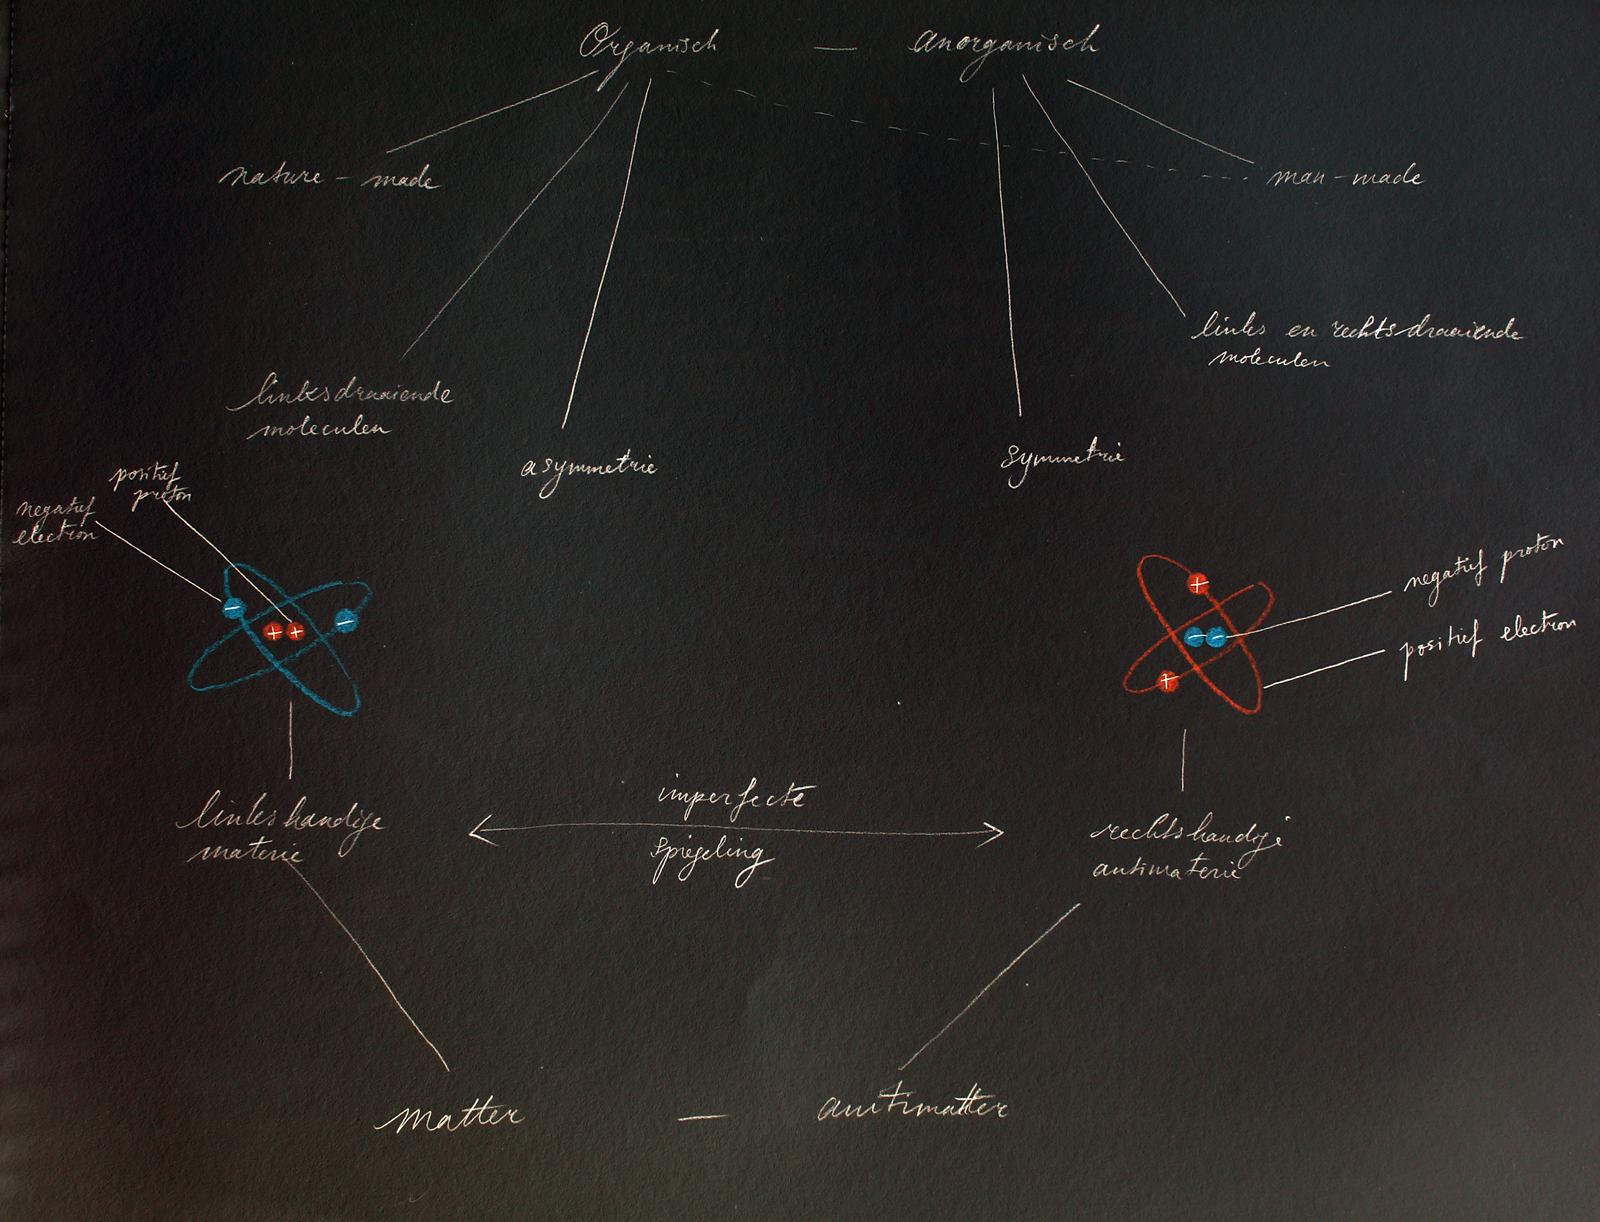 Organisch — anorganisch
nature - made
man - made
links en rechtsdraaiende
moleculen
linksdraaiende
moleculen
asymmetrie
symmetrie
positief
proton
negatief
electron
negatief proton
positief electron
− + + −
+ − − +
imperfecte
spiegeling
linkshandige
materie
rechtshandige
antimaterie
matter — antimatter